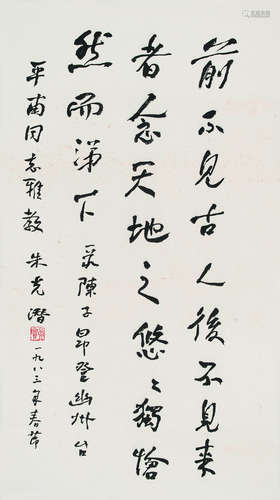 前不見古人後不見来
者念天地之悠々獨愴
然而涕下 录陳子昂登幽州台
平甫同志雅教 朱光潜 一九八三年春节